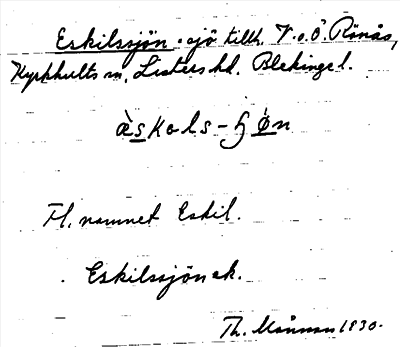 Eskilssjön. sjö tillh. V. o. Ö. Rönås,
Kyrkhults sn. Listers hd. Blekinge l.
àskols-ɧøn
Fl. namnet Eskil.
Eskilssjön ek.
Th. Månsson 1930.